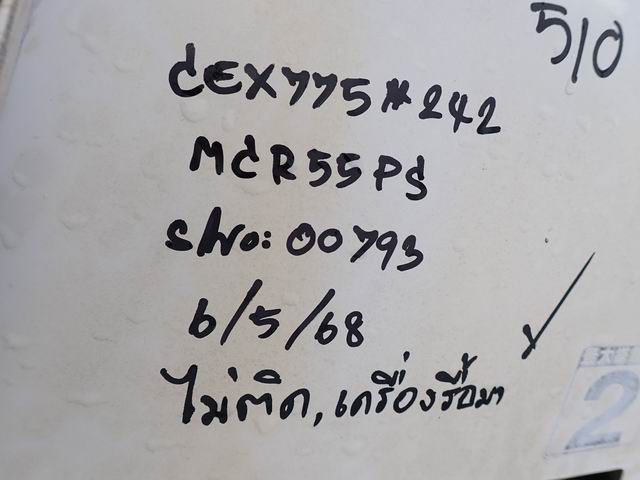 510
CEX775#242
MCR55PS
S/No: 00793
6/5/68
ไม่ติด, เครื่องรื้อมา
2